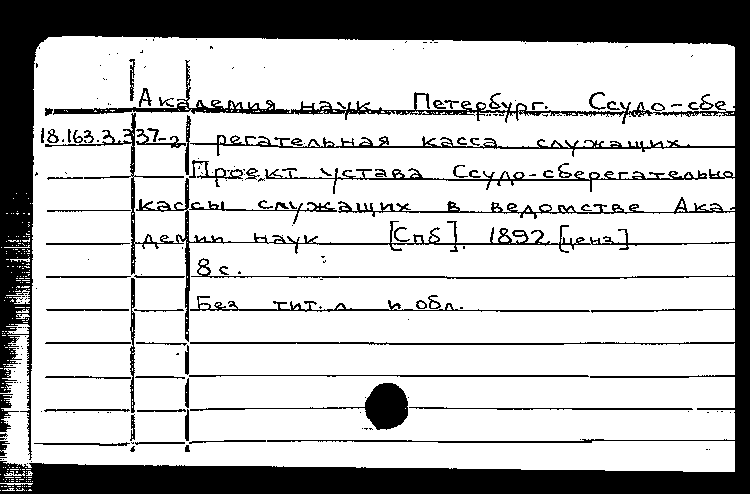 Академия наук. Петербург. Ссудо-сбе-
18.163.3.337-2 регательная касса служащих.
Проект устава Ссудо-сберегательно
кассы служащих в ведомстве Ака-
демии наук [Спб]. 1892 [ценз].
8 с.
Без тит. л. и обл.